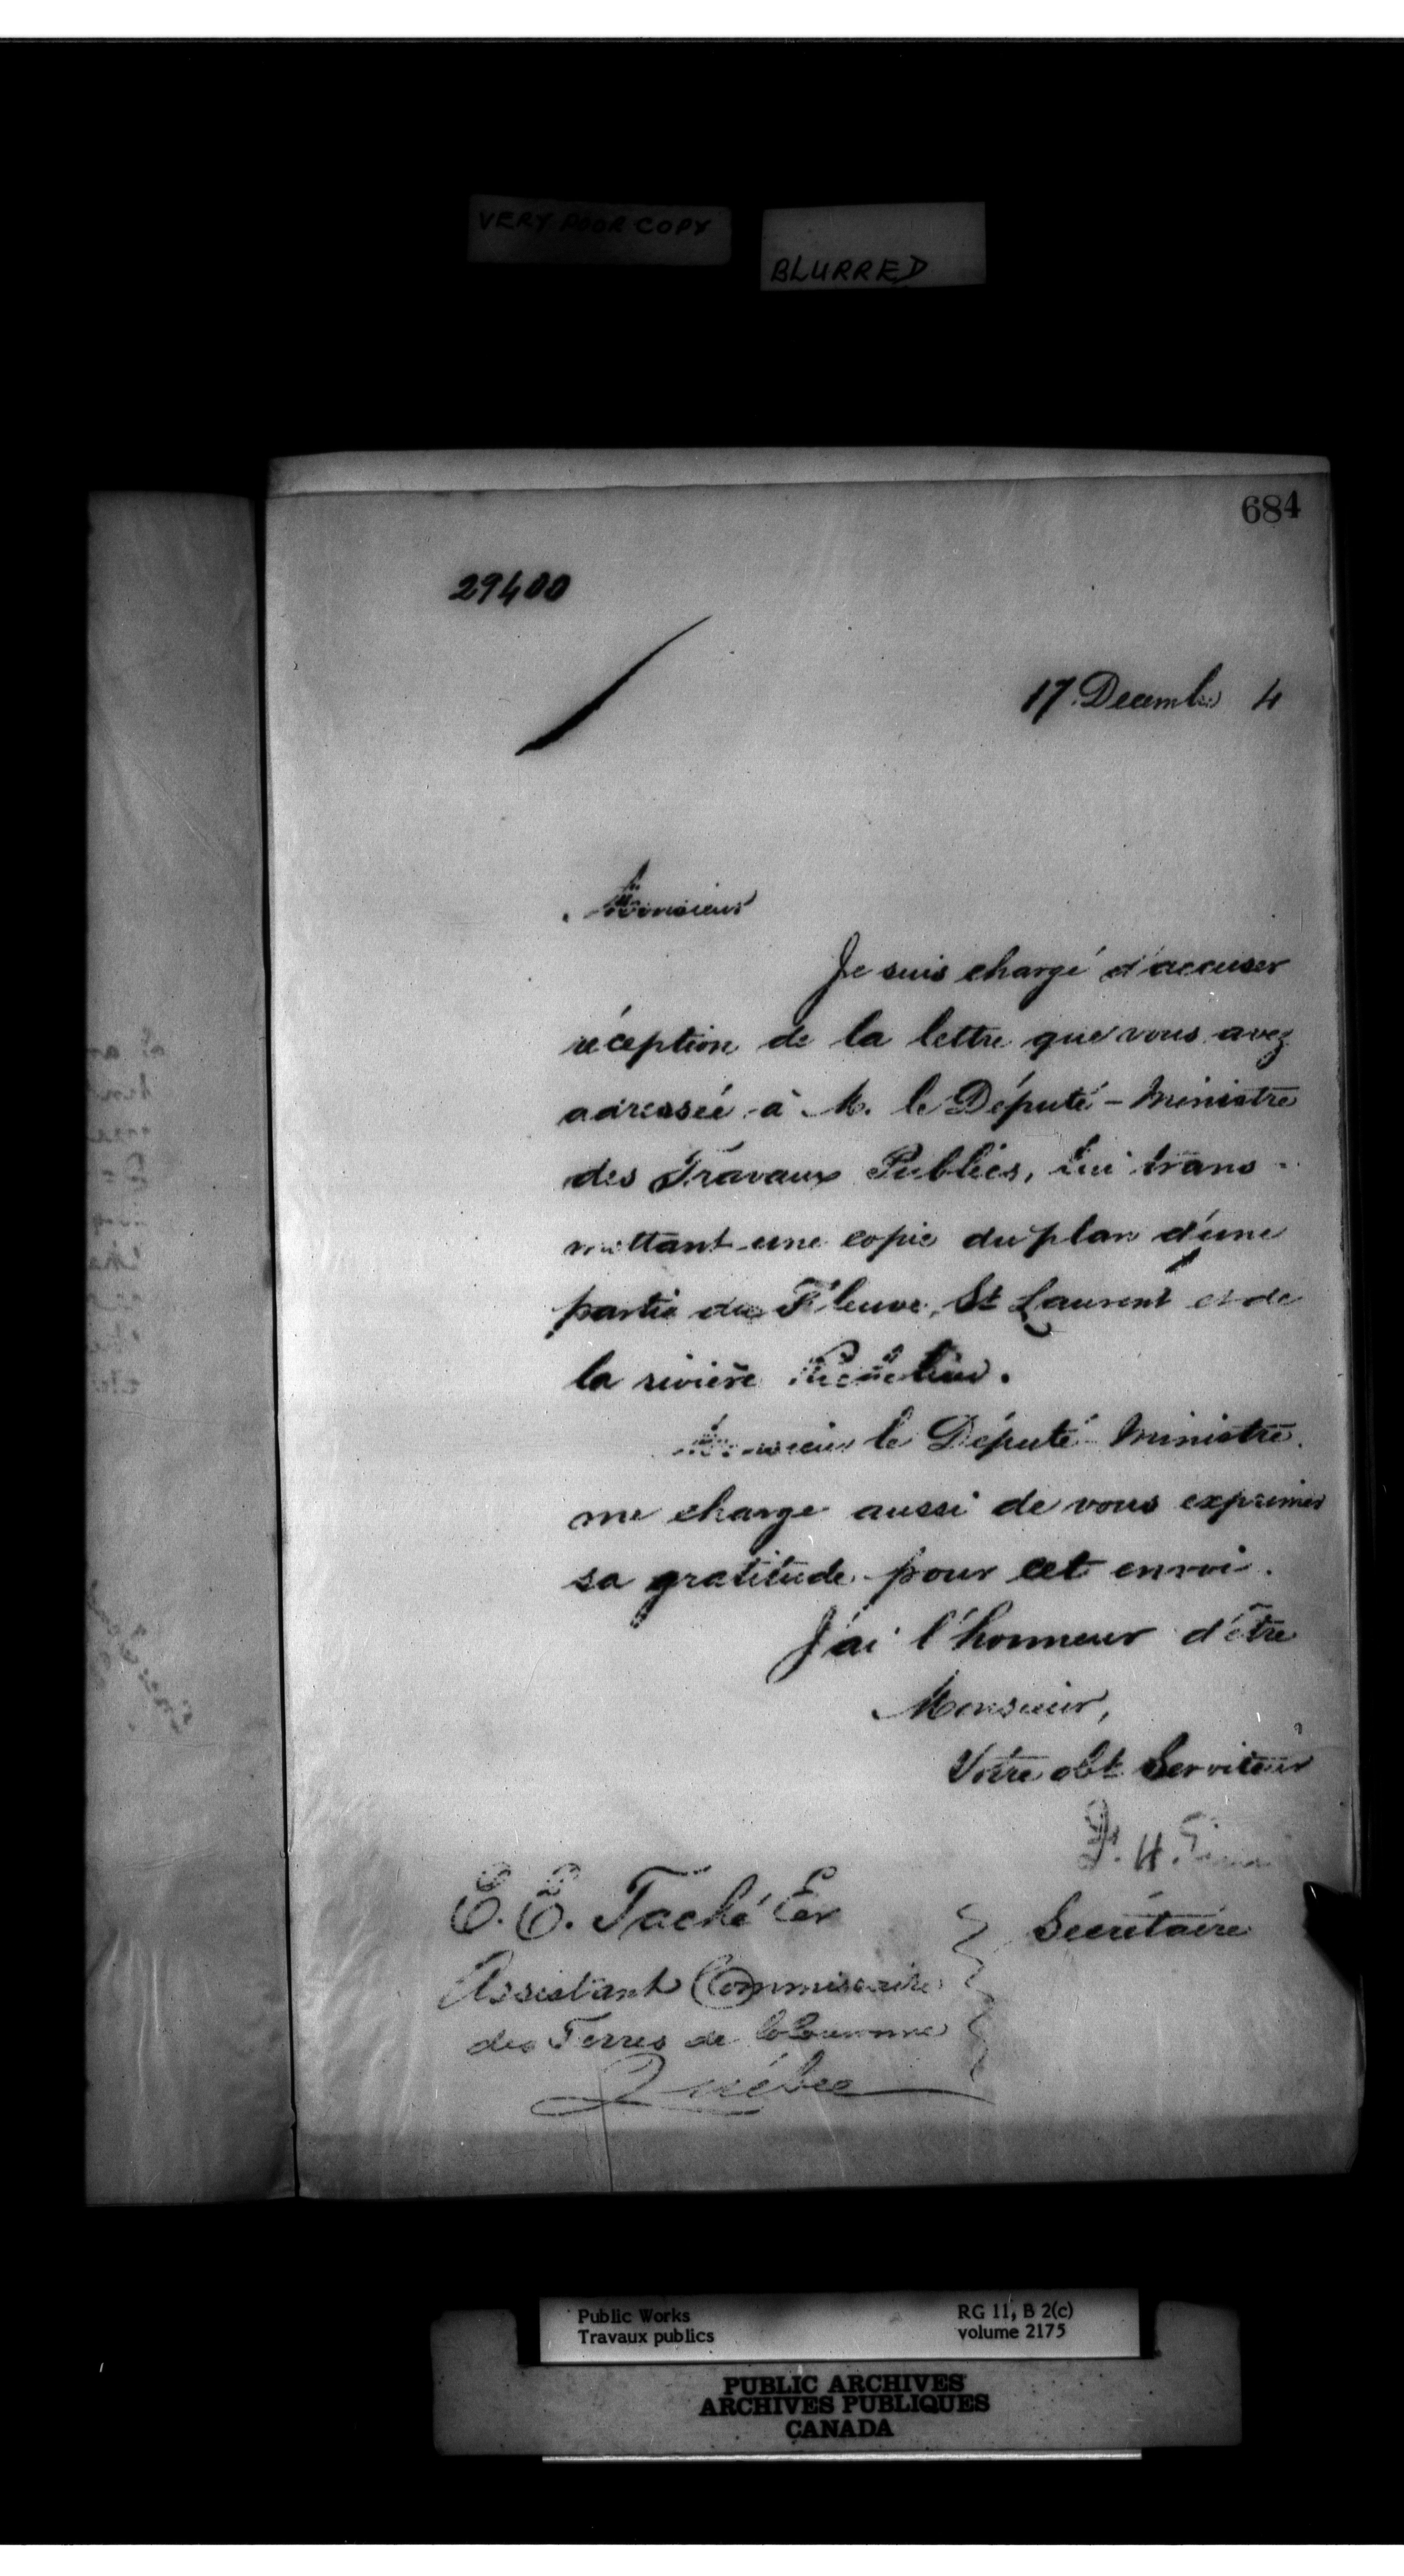 VERY POOR COPY
BLURRED
684
29400
17 Decembre 4
Monsieur
Je suis chargé d'accuser
réception de la lettre que vous avez
adressée à M. le Député-Ministre
des Travaux Publics, lui trans-
mettant une copie du plan d'une
partie du Fleuve St Laurent et de
la rivière Richelieu.
Monsieur le Député-Ministre
me charge aussi de vous exprimer
sa gratitude pour cet envoi.
J'ai l'honneur d'être
Monsieur,
Votre obt Serviteur
E. E. Taché Ecr
Secrétaire
Assistant Commissaire
des Terres de la Couronne
Québec
Public Works
Travaux publics
RG 11, B 2(c)
volume 2175
PUBLIC ARCHIVES
ARCHIVES PUBLIQUES
CANADA